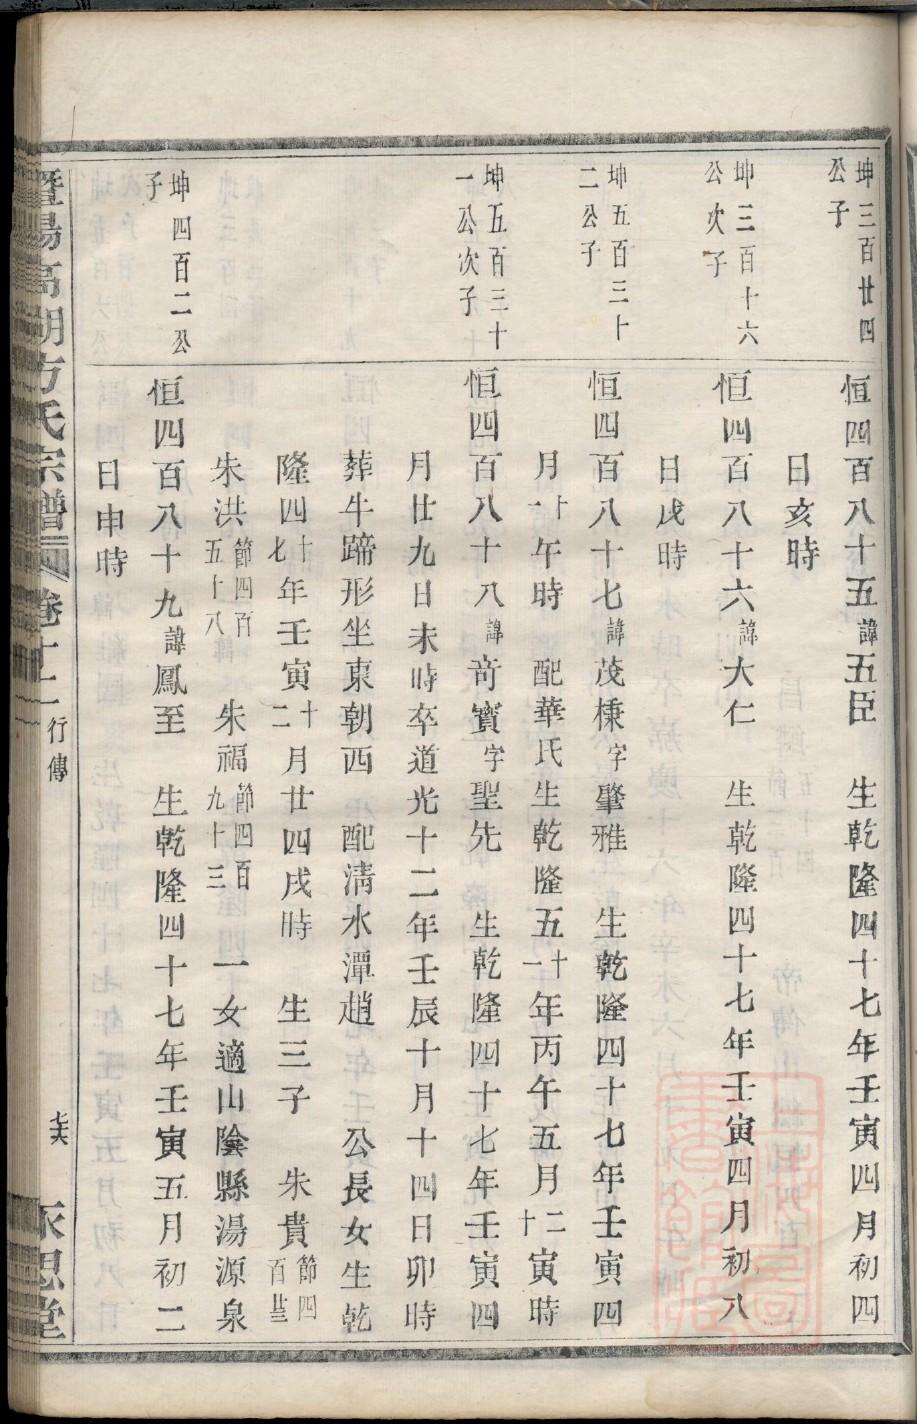 坤三百廿四
公子
恒四百八十五諱五臣 生乾隆四十七年壬寅四月初四
日亥時
坤三百十六
公次子
恒四百八十六諱大仁 生乾隆四十七年壬寅四月初八
日戌時
坤五百三十
二公子
恒四百八十七諱茂棅字肇雅 生乾隆四十七年壬寅四
月十一午時 配華氏生乾隆五十一年丙午五月二十寅時
坤五百三十
一公次子
恒四百八十八諱奇寶字聖先 生乾隆四十七年壬寅四
月廿九日未時卒道光十二年壬辰十月十四日卯時
葬牛蹄形坐東朝西 配清水潭趙 公長女生乾
隆四十七年壬寅十二月廿四戌時 生三子 朱貴節四百
朱洪節四百五十八 朱福節四百九十三 一女適山陰縣湯源泉
坤四百二公
子
恒四百八十九諱鳳至 生乾隆四十七年壬寅五月初二
日申時
暨陽高湖方氏宗譜 卷十二 行傳 七六 永思堂